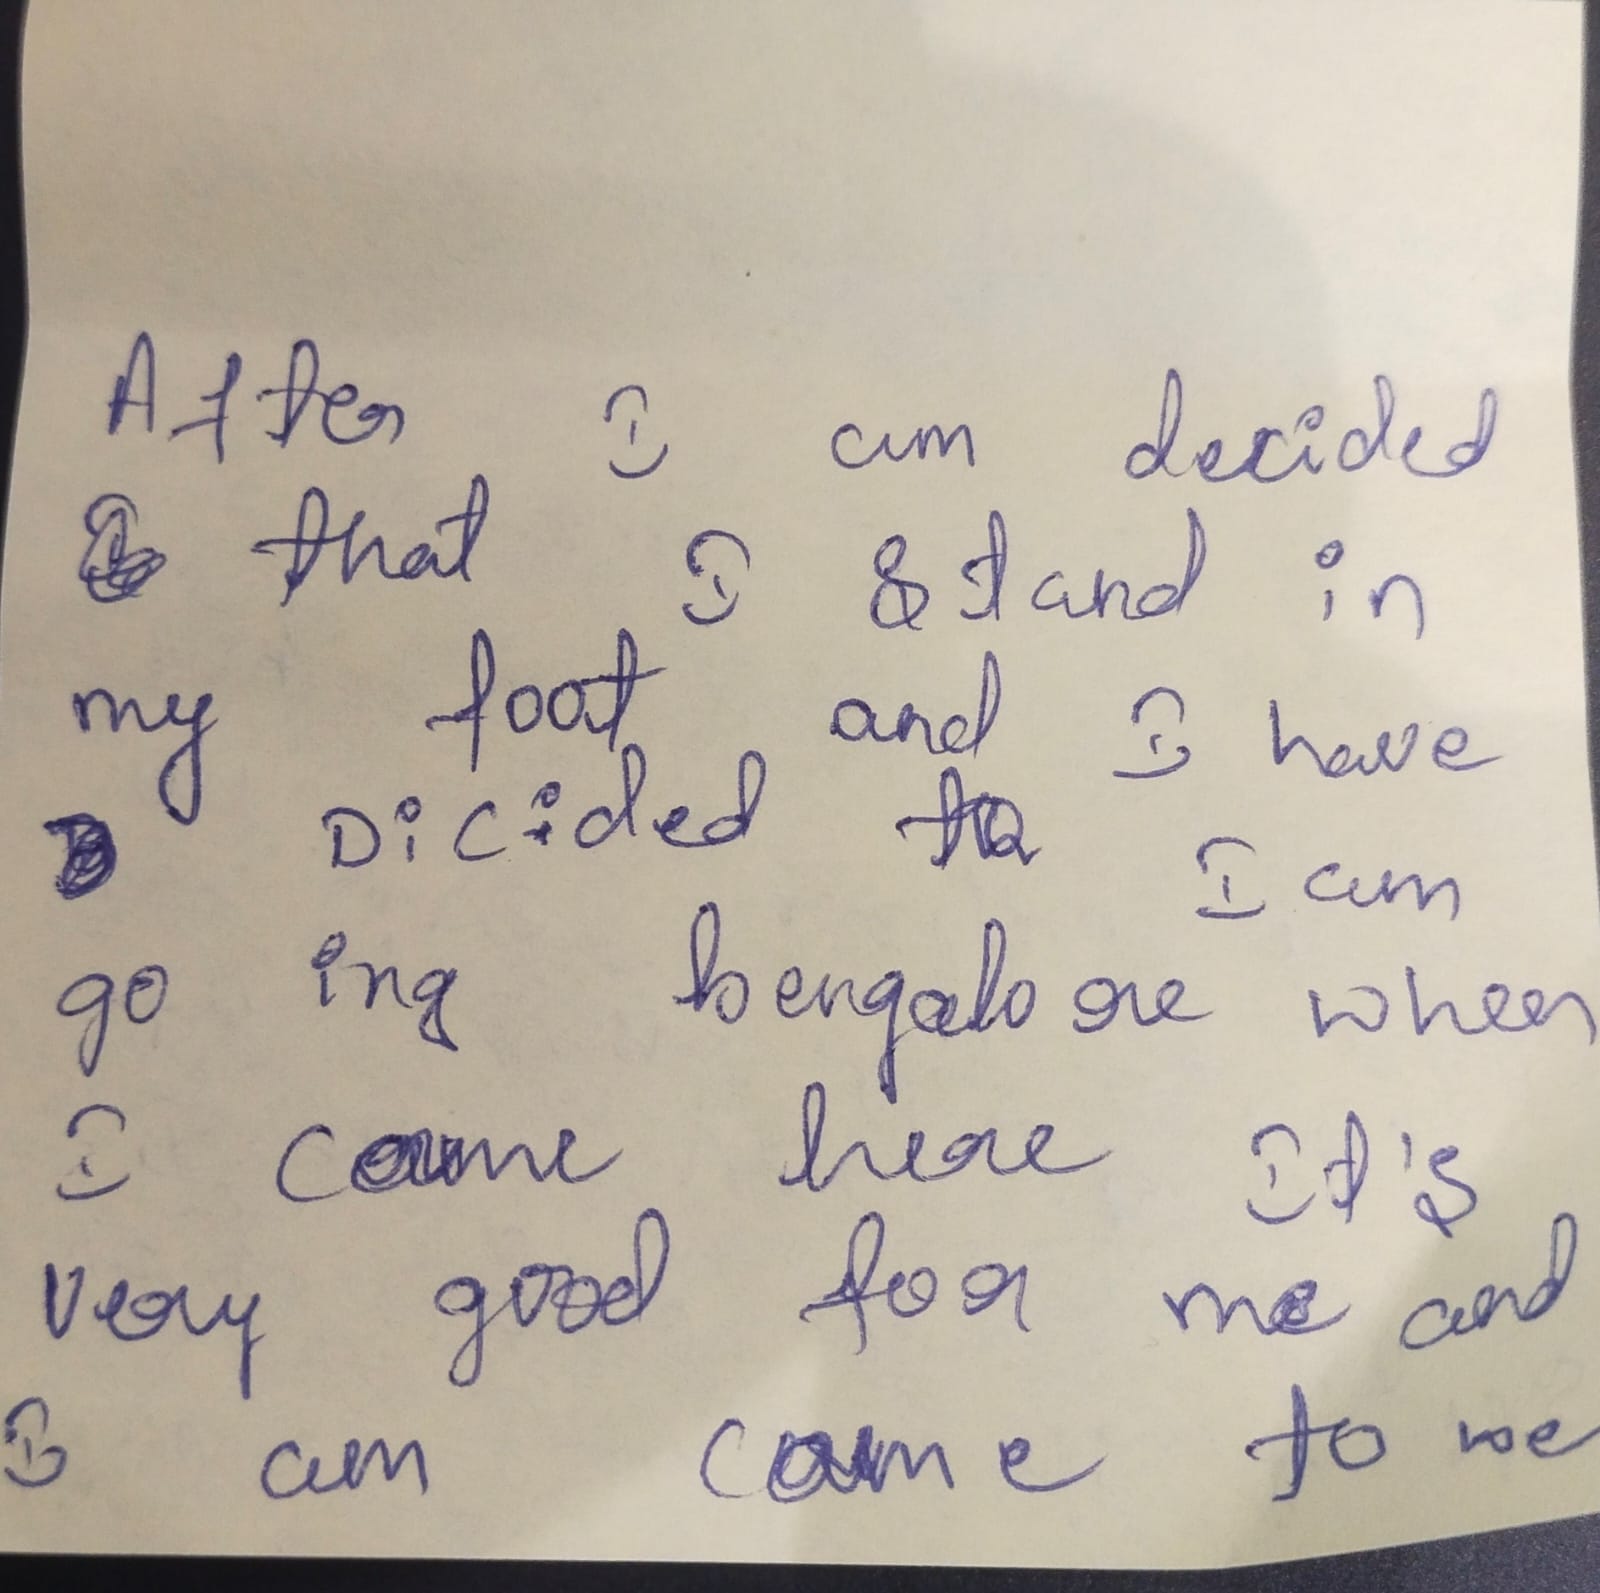 After I am decided
that I Stand in
my foot and I have
Dicided to I am
going bengalore when
I came here It's
very good for me and
I am came to we